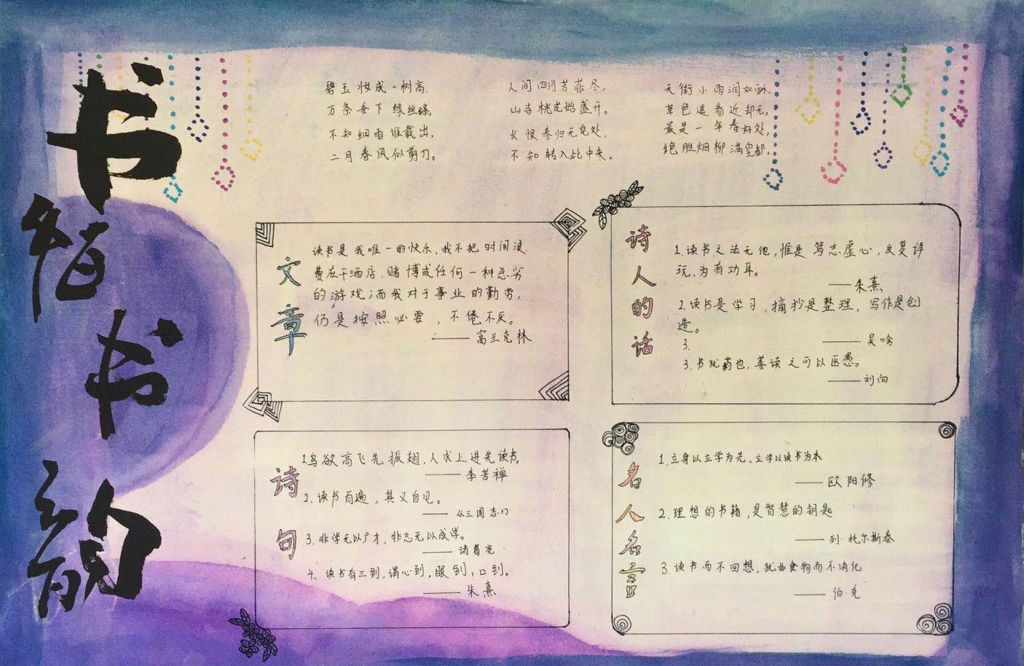 书
香
书
韵
碧玉妆成一树高,
万条垂下绿丝绦。
不知细雨谁裁出,
二月春风似剪刀。
人间四月芳菲尽,
山寺桃花始盛开。
长恨春归无觅处,
不知转入此中来。
天街小雨润如酥,
草色遥看近却无。
最是一年春好处,
绝胜烟柳满皇都。
文章
读书是我唯一的快乐,我不把时间浪
费在于酒店,赌博或任何一种恶劣
的游戏;而我对于事业的勤劳,
仍是按照必要,不倦不厌。
——富兰克林
诗人的话
1.读书之法无他,惟是笃志虚心,反复详
玩,为有功耳。
——朱熹
2.读书是学习,摘抄是整理,写作是创
造。
3. ——吴晗
3.书犹药也,善读之可以医愚。
——刘向
诗句
1.鸟欲高飞先振翅,人求上进先读书
——李苦禅
2.读书百遍,其义自见。
——《三国志》
3.非学无以广才,非志无以成学。
——诸葛亮
4.读书有三到,谓心到,眼到,口到。
——朱熹
名人名言
1.立身以立学为先,立学以读书为本
——欧阳修
2.理想的书籍,是智慧的钥匙
——列·托尔斯泰
3.读书而不回想,犹如食物而不消化
——伯克